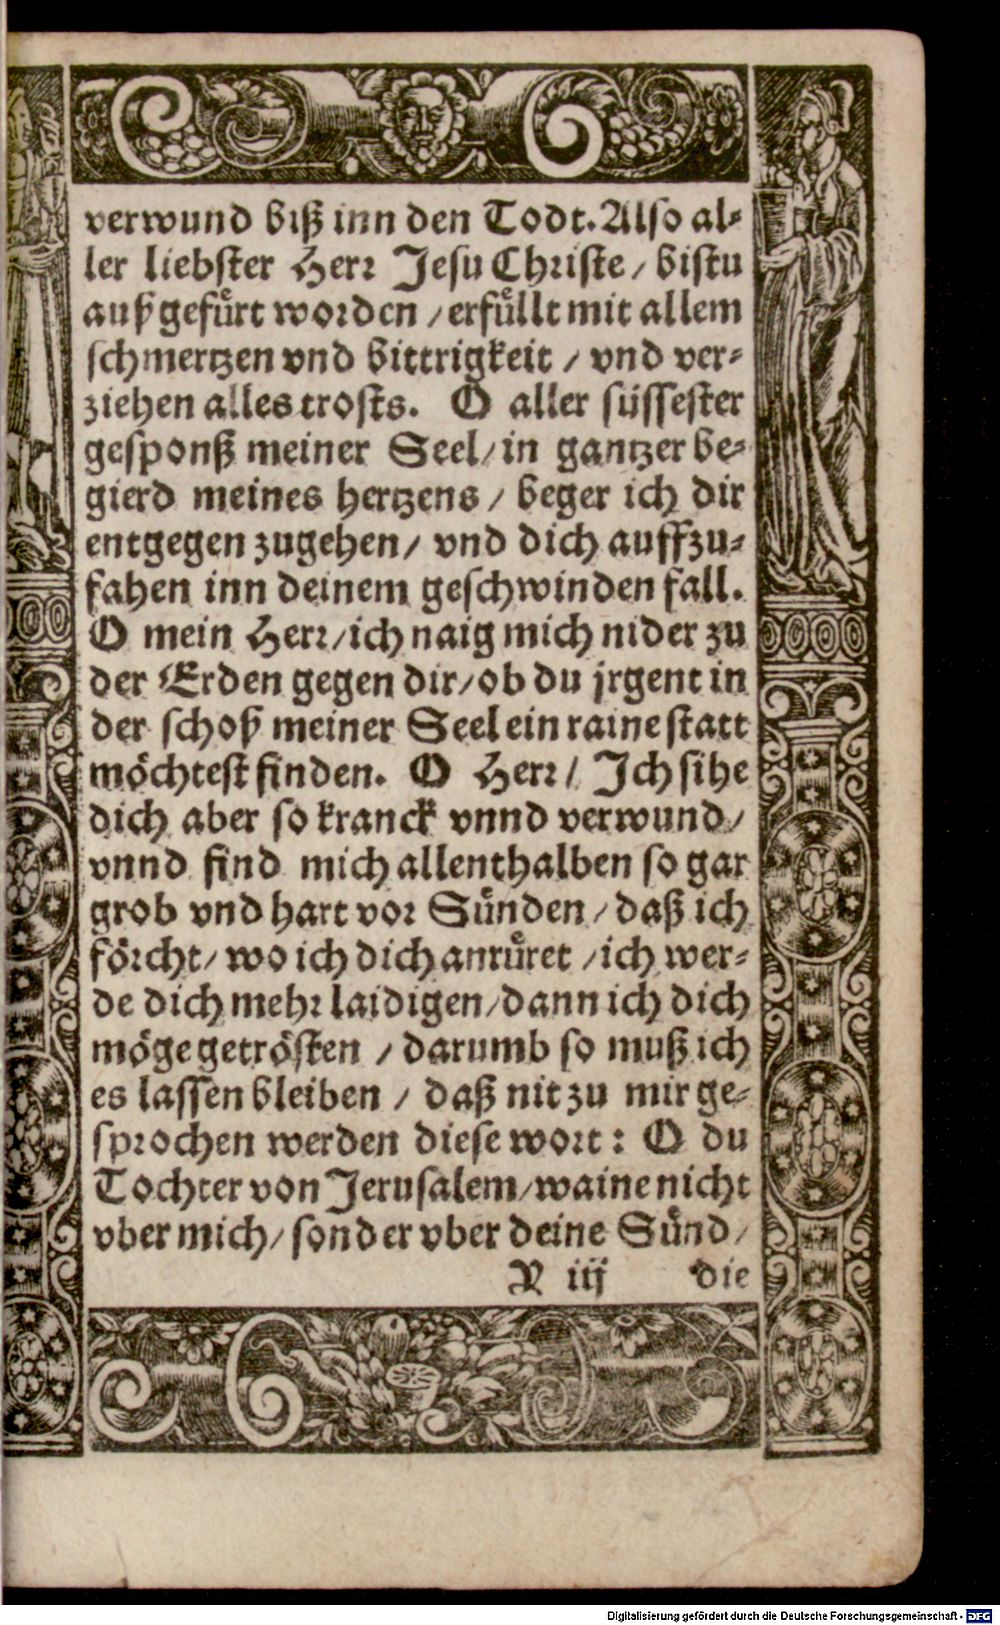 verwund biß inn den Todt. Also al-
ler liebster Herr Jesu Christe / bistu
auß gefürt worden / erfüllt mit allem
schmertzen vnd bittrigkeit / vnd ver-
ziehen alles trosts. O aller süssester
gesponß meiner Seel / in gantzer be-
gierd meines hertzens / beger ich dir
entgegen zugehen / vnd dich auffzu-
fahen inn deinem geschwinden fall.
O mein Herr / ich naig mich nider zu
der Erden gegen dir / ob du jrgent in
der schoß meiner Seel ein raine statt
möchtest finden. O Herr / Ich sihe
dich aber so kranck vnnd verwund /
vnnd find mich allenthalben so gar
grob vnd hart vor Sünden / daß ich
förcht / wo ich dich anrüret / ich wer-
de dich mehr laidigen / dann ich dich
möge getrösten / darumb so muß ich
es lassen bleiben / daß nit zu mir ge-
sprochen werden diese wort : O du
Tochter von Jerusalem / waine nicht
vber mich / sonder vber deine Sünd /
Y iij die
Digitalisierung gefördert durch die Deutsche Forschungsgemeinschaft - DFG